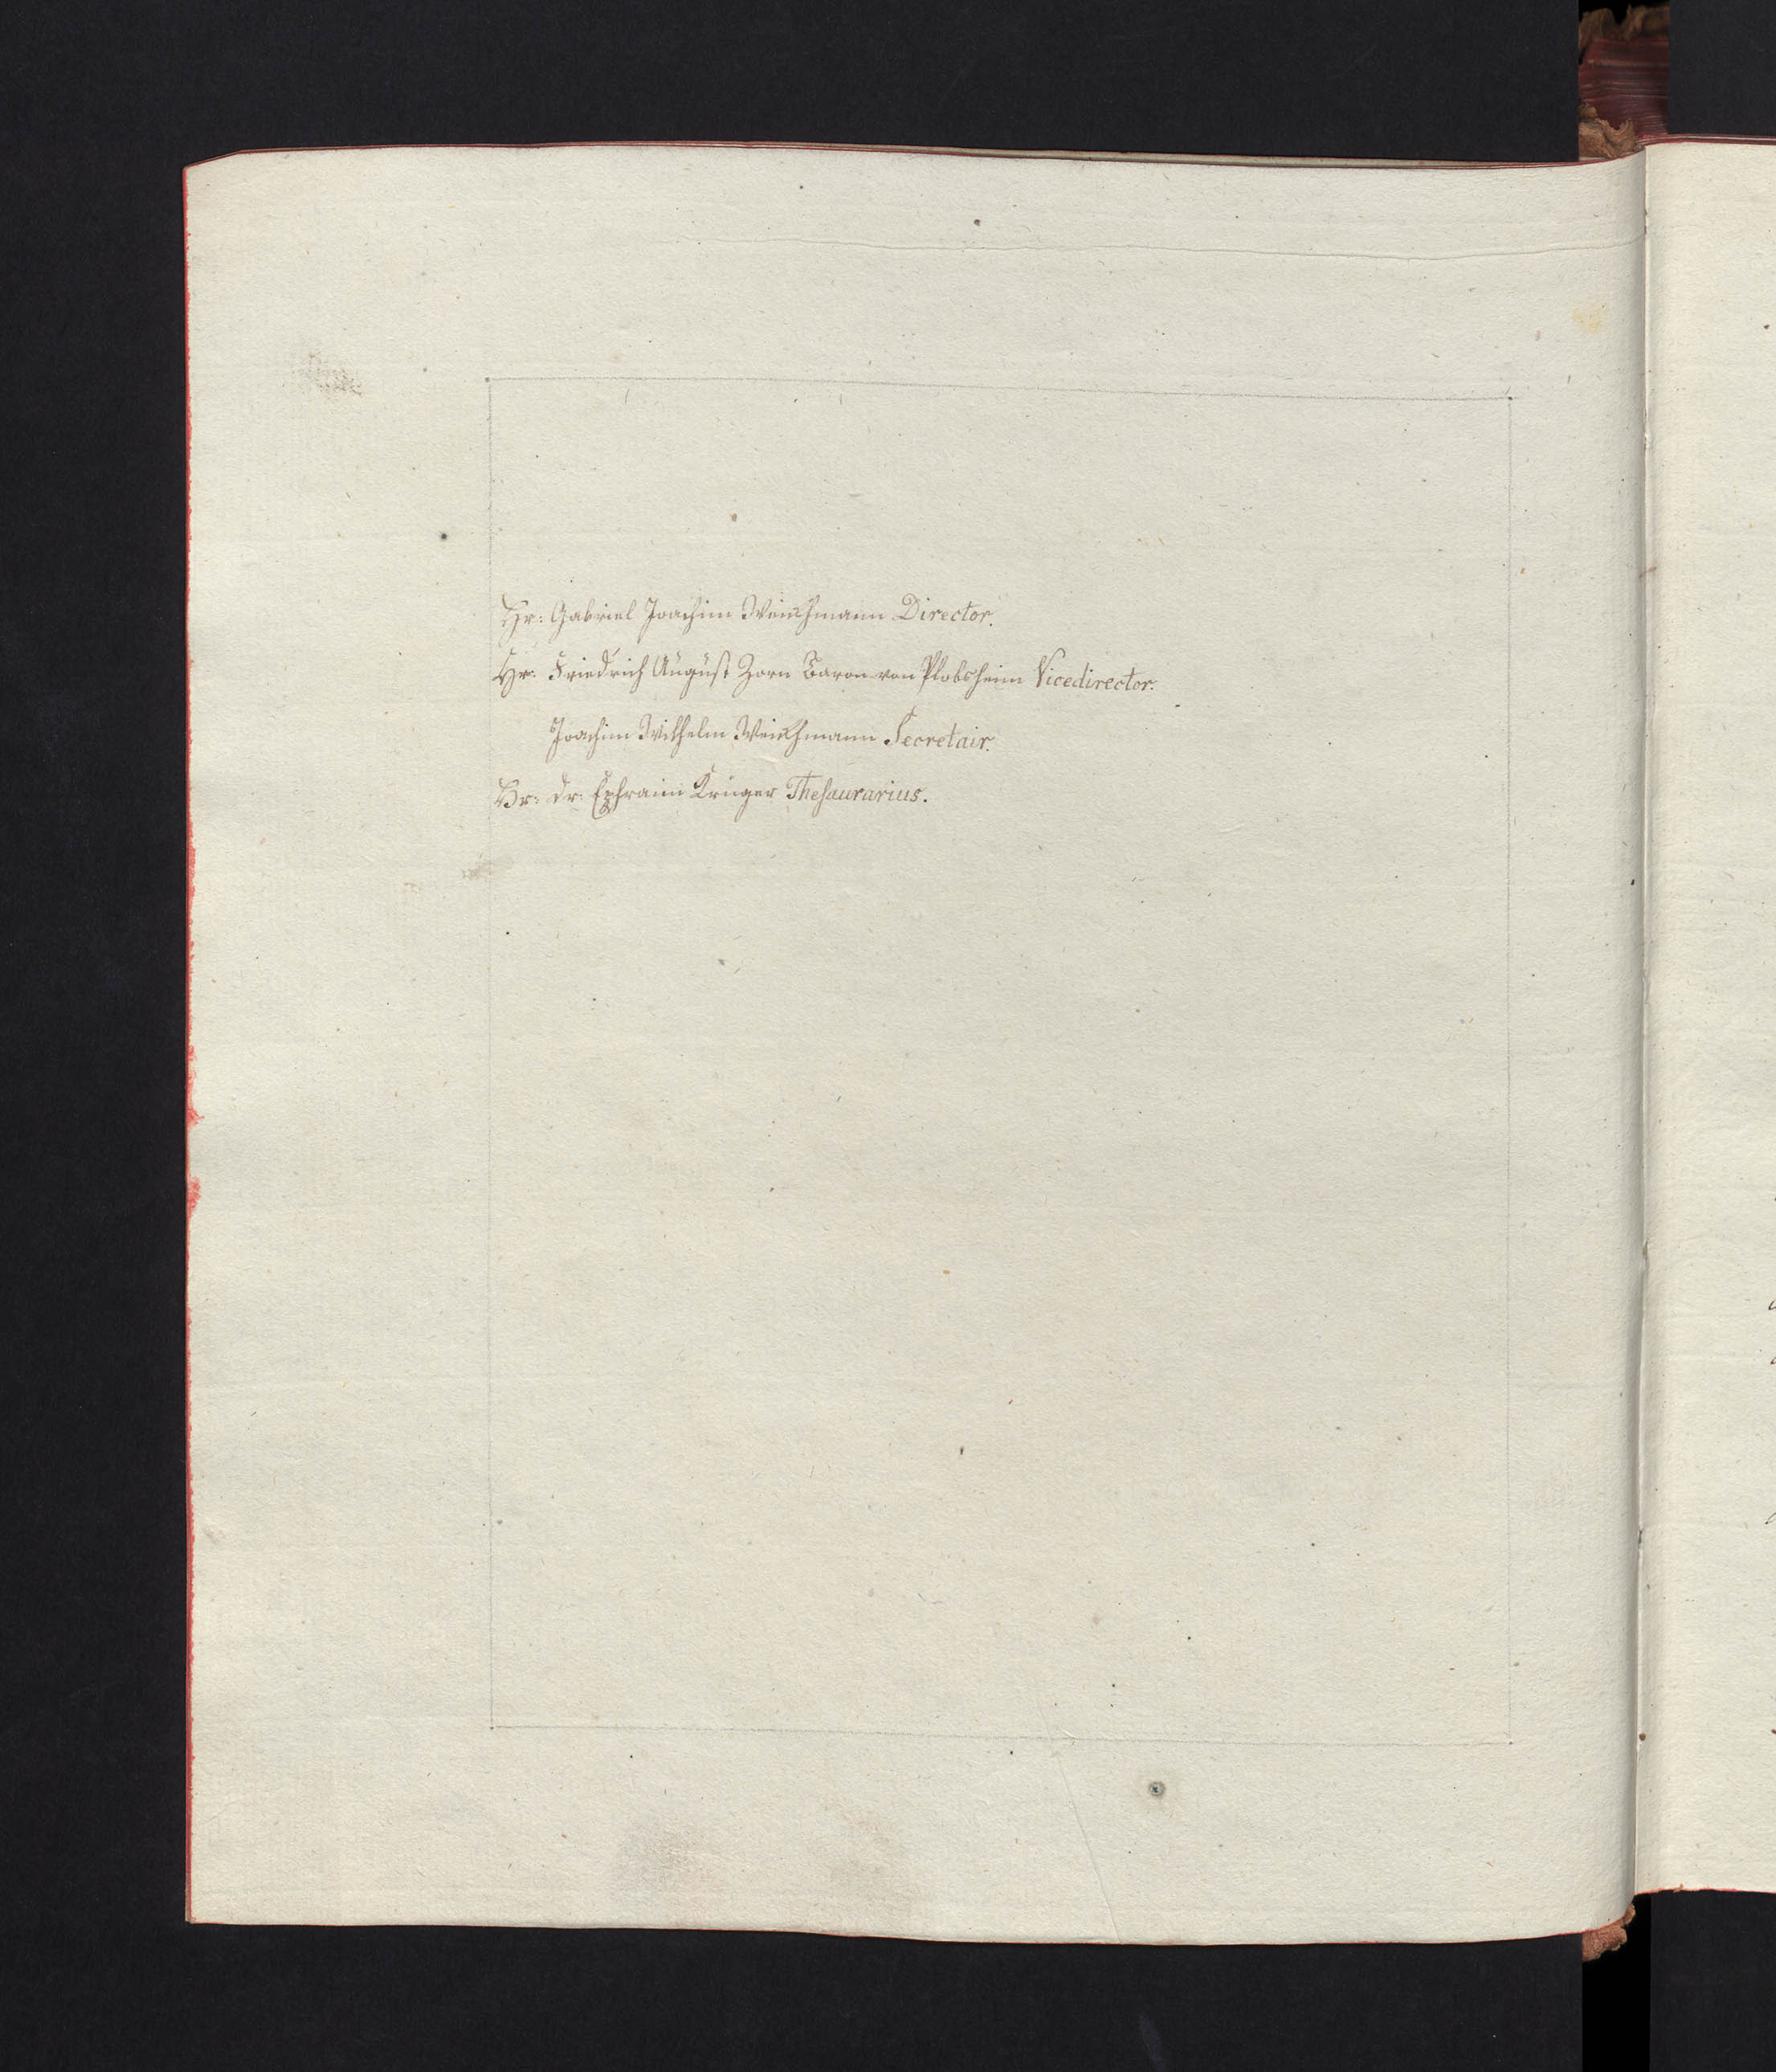 Hr: Gabriel Joachim Weickhmann Director.
Hr: Friedrich August Zorn Baron von Plobsheim Vicedirector.
Joachim Wilhelm Weickhmann Secretair.
Hr: Dr: Ephraim Krüger Thesaurarius.